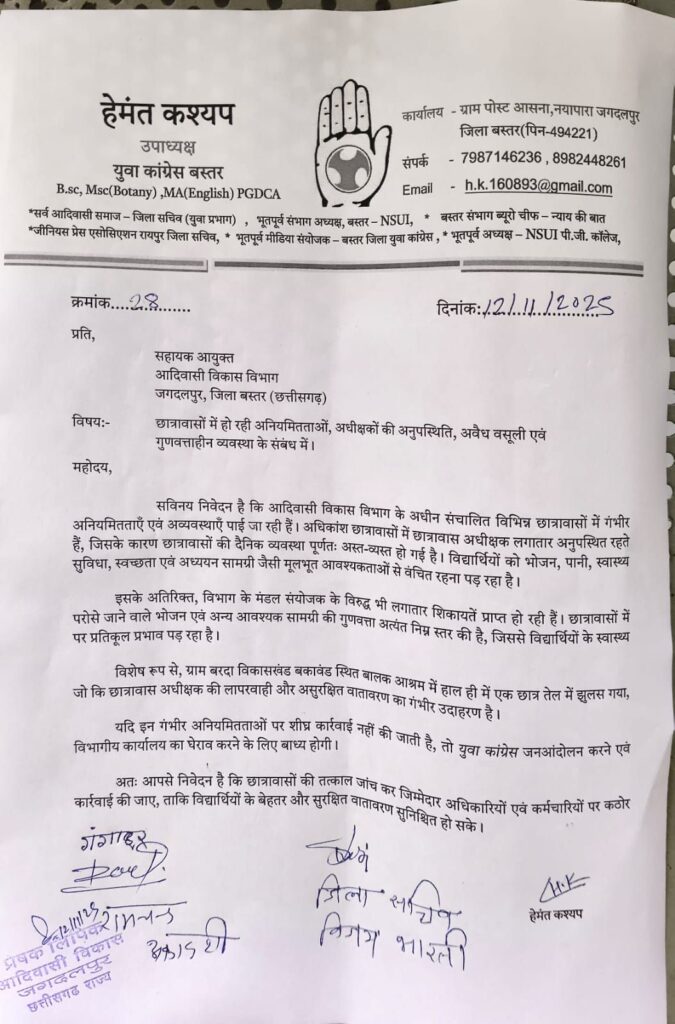 हेमंत कश्यप
उपाध्यक्ष
युवा कांग्रेस बस्तर
B.sc, Msc(Botany) ,MA(English) PGDCA
कार्यालय - ग्राम पोस्ट आसना,नयापारा जगदलपुर
जिला बस्तर(पिन-494221)
संपर्क - 7987146236 , 8982448261
Email - h.k.160893@gmail.com
*सर्व आदिवासी समाज – जिला सचिव (युवा प्रभाग) , भूतपूर्व संभाग अध्यक्ष, बस्तर – NSUI, * बस्तर संभाग ब्यूरो चीफ – न्याय की बात
*जीनियस प्रेस एसोसिएशन रायपुर जिला सचिव, * भूतपूर्व मीडिया संयोजक – बस्तर जिला युवा कांग्रेस , * भूतपूर्व अध्यक्ष – NSUI पी.जी. कॉलेज,
क्रमांक....28.......
दिनांक:12/11/2025
प्रति,
सहायक आयुक्त
आदिवासी विकास विभाग
जगदलपुर, जिला बस्तर (छत्तीसगढ़)
विषय:- छात्रावासों में हो रही अनियमितताओं, अधीक्षकों की अनुपस्थिति, अवैध वसूली एवं
गुणवत्ताहीन व्यवस्था के संबंध में।
महोदय,
सविनय निवेदन है कि आदिवासी विकास विभाग के अधीन संचालित विभिन्न छात्रावासों में गंभीर
अनियमितताएँ एवं अव्यवस्थाएँ पाई जा रही हैं। अधिकांश छात्रावासों में छात्रावास अधीक्षक लगातार अनुपस्थित रहते
हैं, जिसके कारण छात्रावासों की दैनिक व्यवस्था पूर्णतः अस्त-व्यस्त हो गई है। विद्यार्थियों को भोजन, पानी, स्वास्थ्य
सुविधा, स्वच्छता एवं अध्ययन सामग्री जैसी मूलभूत आवश्यकताओं से वंचित रहना पड़ रहा है।
इसके अतिरिक्त, विभाग के मंडल संयोजक के विरुद्ध भी लगातार शिकायतें प्राप्त हो रही हैं। छात्रावासों में
परोसे जाने वाले भोजन एवं अन्य आवश्यक सामग्री की गुणवत्ता अत्यंत निम्न स्तर की है, जिससे विद्यार्थियों के स्वास्थ्य
पर प्रतिकूल प्रभाव पड़ रहा है।
विशेष रूप से, ग्राम बरदा विकासखंड बकावंड स्थित बालक आश्रम में हाल ही में एक छात्र तेल में झुलस गया,
जो कि छात्रावास अधीक्षक की लापरवाही और असुरक्षित वातावरण का गंभीर उदाहरण है।
यदि इन गंभीर अनियमितताओं पर शीघ्र कार्रवाई नहीं की जाती है, तो युवा कांग्रेस जनआंदोलन करने एवं
विभागीय कार्यालय का घेराव करने के लिए बाध्य होगी।
अतः आपसे निवेदन है कि छात्रावासों की तत्काल जांच कर जिम्मेदार अधिकारियों एवं कर्मचारियों पर कठोर
कार्रवाई की जाए, ताकि विद्यार्थियों के बेहतर और सुरक्षित वातावरण सुनिश्चित हो सके।
गंगाधर
जिला सचिव
विजय भारती
H.K
हेमंत कश्यप
12/11/25
आदिवासी विकास
जगदलपुर
छत्तीसगढ़ राज्य